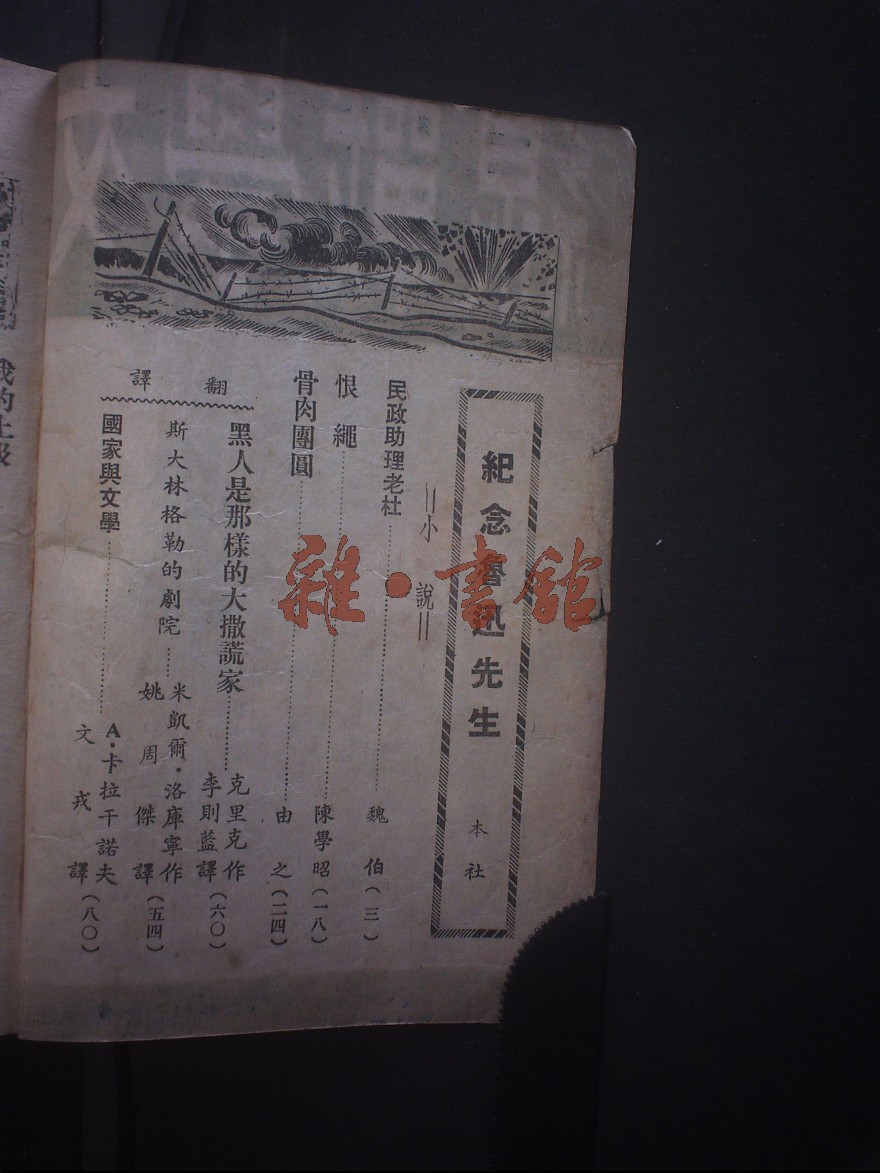 紀念魯迅先生 本社
=小說=
民政助理老杜……魏伯(三)
恨繩……陳學昭(一八)
骨肉團圓……由之(二四)
翻譯
黑人是那樣的大撒謊家……克里克作
李則藍譯(六〇)
斯大林格勒的劇院……米凱爾·洛庫寧作
姚周傑譯(五四)
國家與文學……A·卡拉干諾夫
文戎譯(八〇)
雜·書館
我的上級